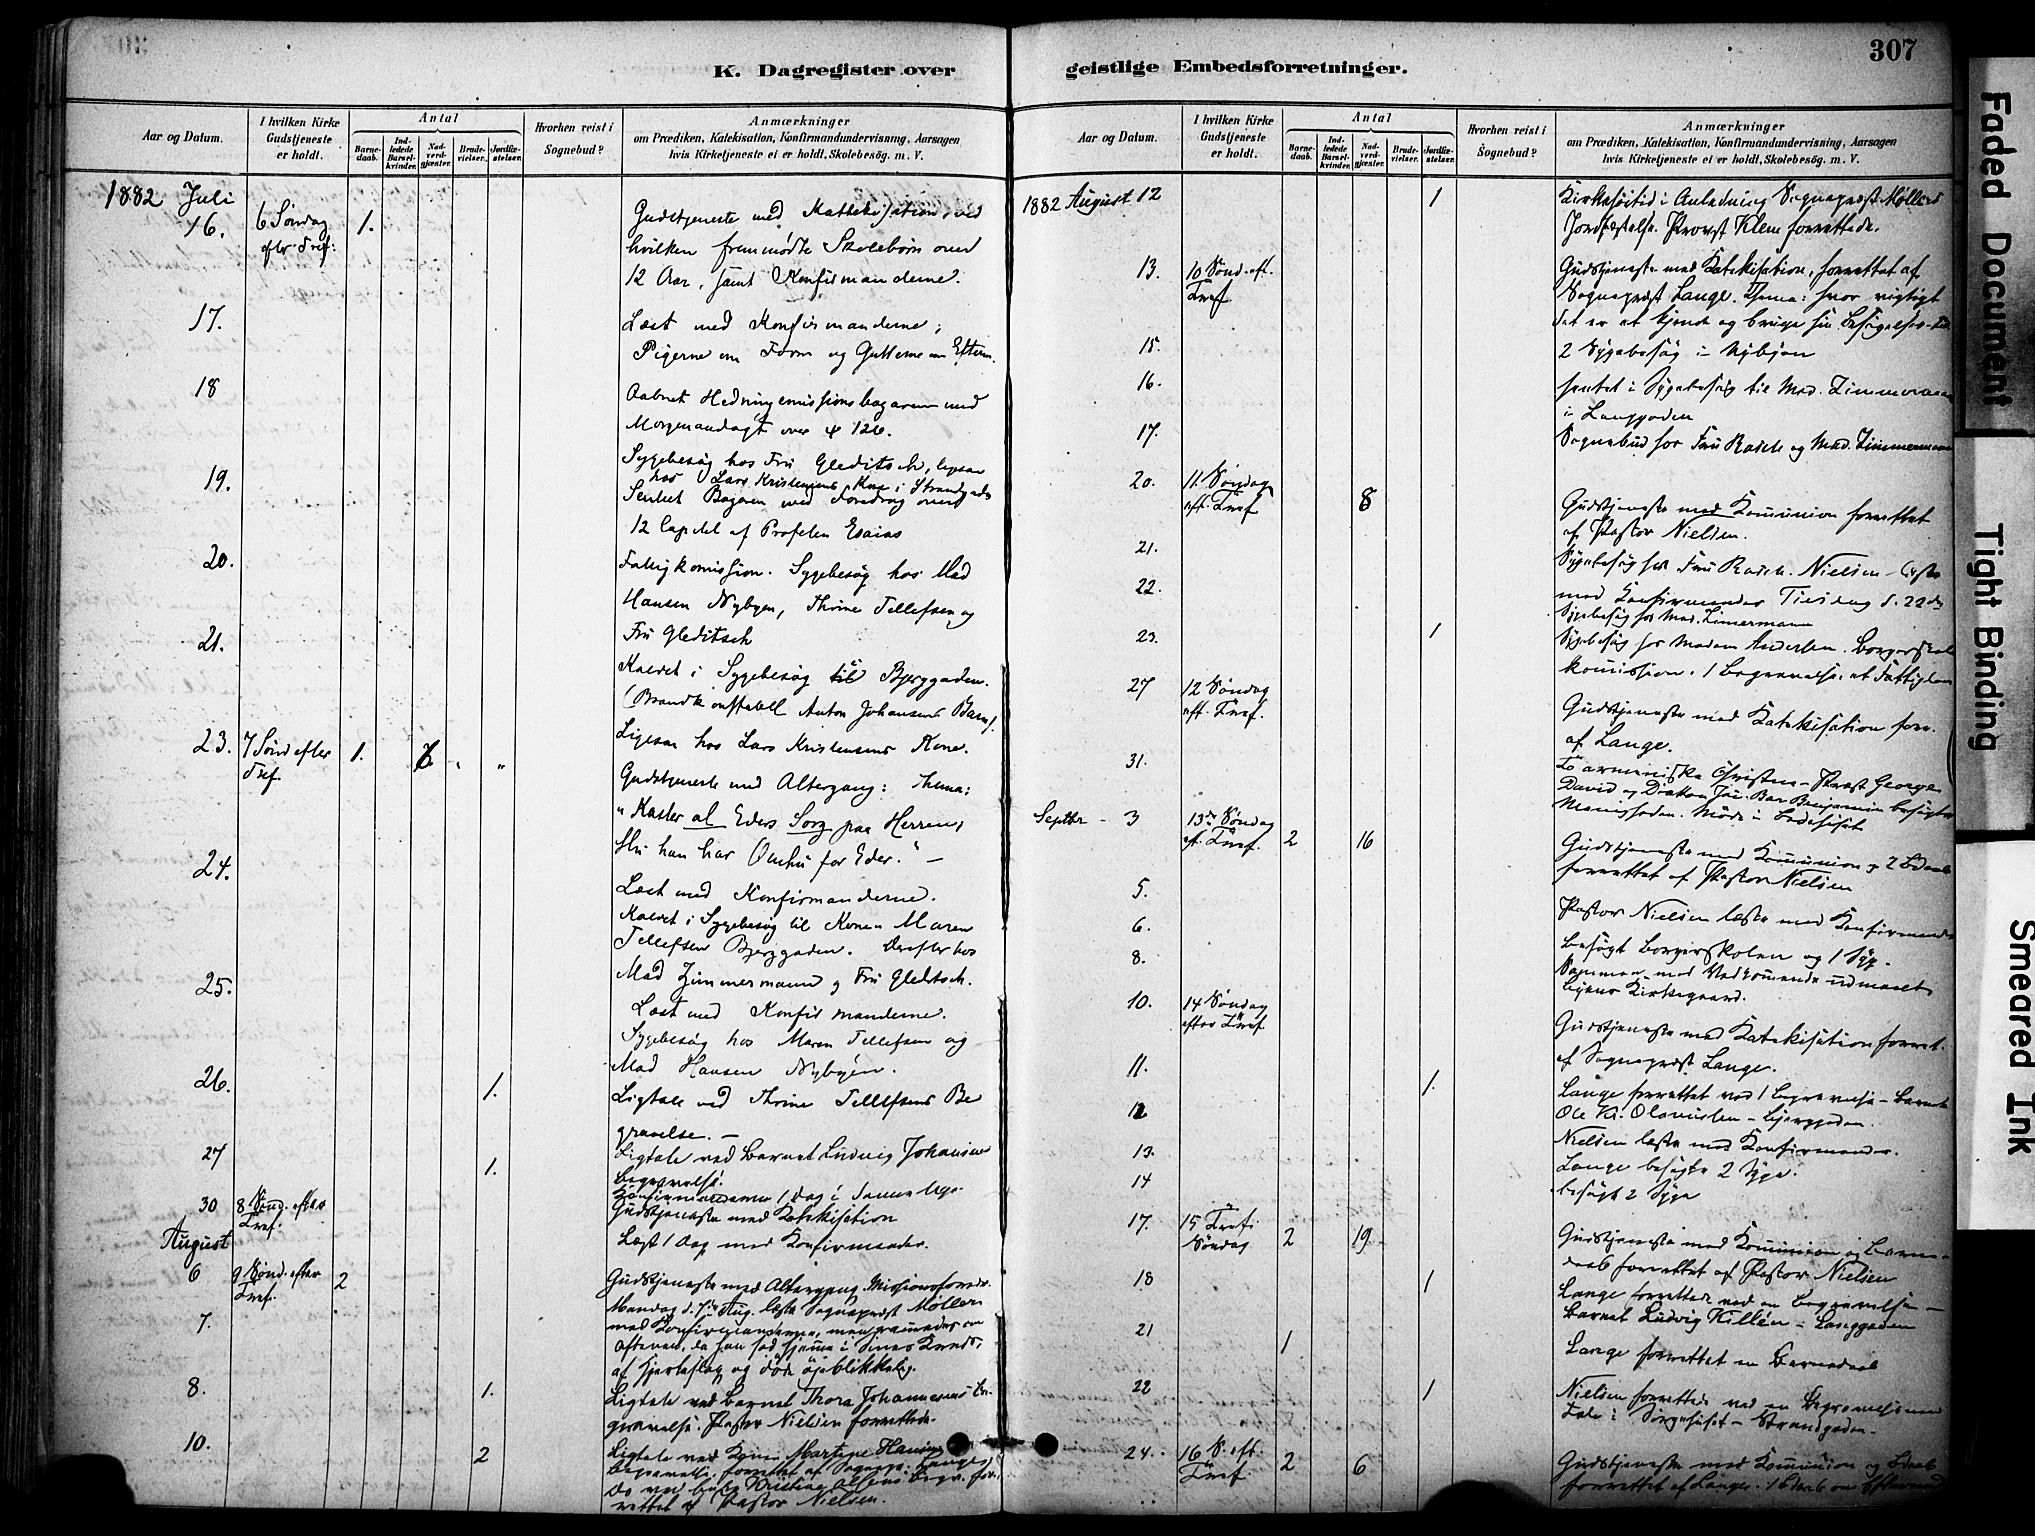 307
K. Dagregister over
geistlige Embedsforretninger.
Aar og Datum.
I hvilken Kirke Gudstjeneste er holdt.
Antal
Barnedaab.
Indledede Barselkvinder.
Nadverdgjæster.
Brudevielser.
Jordfæstelser.
Hvorhen reist i Sognebud?
Anmærkninger
om Prædiken, Katekisation, Konfirmandundervisning, Aarsagen
hvis Kirketjeneste ei er holdt, Skolebesög. m. V.
1882 Juli
16. 6 Søndag efter Tref: 1.
Gudstjeneste med Kattekisation, ved
hvilken fremmødte Skolebörn over
12 Aar, samt Konfirmanderne.
17.
Læst med Konfirmanderne;
Pigerne om Form og Gutterne om Efterm.
18
Aabnet Hedningemissionsbazaren med
Morgenandagt over ψ 126.
19.
Sygebesøg hos Fru Gleditsch, ligesaa
hos Lars Kristensens Kone i Strandgaden
Sluttet Bazaren med Foredrag over
12 Capitel af Profeten Esaias
20.
Fattigkomission. Sygebesøg hos Mad
Hansen Nybyen, Thrine Tellefsen og
Fru Gleditsch
21.
Kaldet i Sygebesøg til Bjerggaden.
(Brandkonstabel Anton Johansens Barn).
Ligesaa hos Lars Kristensens Kone.
23. 7 Sønd efter Tref. 1. 6 „ „
Gudstjeneste med Altergang: Thema:
"Kaster al Eders Sorg paa Herren,
thi han har Omhu for Eder." –
24.
Læst med Konfirmanderne.
Kaldet i Sygebesøg til Konen Maren
Tellefsen Bjerggaden. Derefter hos
Mad Zimmermann og Fru Gleditsch.
25.
Læst med Konfirmanderne.
Sygebesøg hos Maren Tellefsen og
Mad Hansen Nybyen.
26. 1.
Ligtale ved Thrine Tellefsens Be
gravelse. –
27 1.
Ligtale ved Barnet Ludvig Johansens
Begravelse.
Konfirmanderne 1 Dag i Samme Uge
30 8 Sønd. efter Tref.
Gudstjeneste med Katekisation
Læst 1 Dag med Konfirmander.
August
6 9 Sønd. efter Tref. 2
Gudstjeneste med Altergang. Missionsforedr.
7.
Mandag d. 7de Aug. læste Sogneprest Møller
med Konfirmanderne, men
Aftenen, da han sad hjemme i
af Hjerteslag og døde øjeblikkelig.
8. 1.
Ligtale ved Barnet Thora Johannesens Be-
gravelse. Pastor Nielsen forrettede.
10. 2
Ligtale ved
Begravelse, forrettet af Sognepr. Lange,
Do ved Kristine Begr. for-
rettet af Pastor Nielsen.
Aar og Datum.
I hvilken Kirke Gudstjeneste er holdt.
Antal
Barnedaab.
Indledede Barselkvinder.
Nadverdgjæster.
Brudevielser.
Jordfæstelser.
Hvorhen reist i Sognebud?
Anmærkninger
om Prædiken, Katekisation, Konfirmandundervisning, Aarsagen
hvis Kirketjeneste ei er holdt, Skolebesög. m. V.
1882 August 12 1
Kirkehøitid i Anledning Sogneprest Møllers
Jordfæstelse. Provst Klem forrettede.
13. 10 Sønd. eft. Tref
Gudstjeneste med Katekisation, forrettet af
Sogneprest Lange. Thema: hvor vigtigt
det er at kjende og bruge sin Besøgelses-tid
15.
2 Sygebesøg i Nybyen
16.
hentet i Sygebesøg til Mad. Zimmermann
i Langgaden
17.
Sognebud hos Fru Rasch og Mad. Zimmermann
20. 11 Søndag eft. Tref 8
Gudstjeneste med Kommunion forrettet
af Pastor Nielsen.
21.
Sygebesøg hos Fru Rasch. Nielsen læste
22.
med Konfirmander Tirsdag d. 22de
Sygebesøg hos Mad. Zimermann
23. 1
Sygebesøg hos Madam Andersen. Borgerskole
komission. 1 Begravelse: et Fattiglem
27 12 Søndag eft. Tref.
Gudstjeneste med Katekisation forr.
af Lange.
31.
To armeniske Christne – Prest George
David og Diakon Jou. Bar Benjamin besøgte
Menigheden. Møde i Bedehuset
Septbr – 3 13de Søndag eft. Tref. 2 16
Gudstjeneste med Kommunion og 2 Bdaab
forrettet af Pastor Nielsen
5.
Pastor Nielsen læste med Konfirmander
6.
Besøgt Borgerskolen og 1 Syg.
8.
Sammen med Vedkommende udmaalt
Byens Kirkegaard.
10. 14 Søndag efter Tref
Gudstjeneste med Katekisation forret.
af Sogneprest Lange.
11. 1.
Lange forrettet ved 1 Begravelse – Barnet
Ole Kr. Olavesen – Bjerggaden.
12
Nielsen læste med Konfirmander.
13.
Lange besøgte 2 Syge.
14
besøgt 2 Syge
17. 15 Tref: Søndag 2 19
Gudstjeneste med Kommunion og Barne-
daab forrettet af Pastor Nielsen
18 1
Lange forrettede ved en Begravelse –
Barnet Ludvig Killén – Langgaden
21 1
Lange forrettet en Barnedaab
22 1
Nielsen forrettede ved en Begravelse med
Tale i Sørgehuset – Strandgaden.
24. 16 S. eft. Tref 2 6
Gudstjeneste med Kommunion og Bdaab
forrettet af Lange. 1 Bdaab om Eftermid
Faded Document
Tight Binding
Smeared Ink